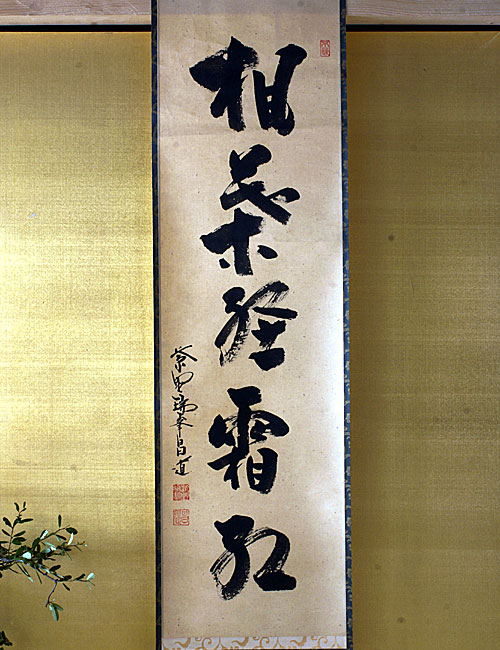 葉経霜紅
紫野瑞峯昌道